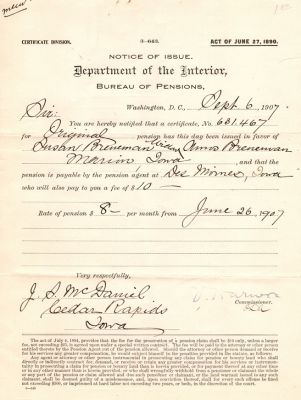 new
CERTIFICATE DIVISION. 3—643. ACT OF JUNE 27, 1890.
NOTICE OF ISSUE.
Department of the Interior,
BUREAU OF PENSIONS,
Washington, D. C., Sept 6, 1907
Sir:
You are hereby notified that a certificate, No. 631.467
for Original pension has this day been issued in favor of
Susan Breneman Widow Amos Breneman
Marion, Iowa, and that the
pension is payable by the pension agent at Des Moines, Iowa
who will also pay to you a fee of $10 —
Rate of pension $8— per month from June 26, 1907
Very respectfully,
J. S. McDaniel
Commissioner.
Cedar Rapids
Iowa
The act of July 4, 1884, provides that the fee for the prosecution of a pension claim shall be $10 only, unless a larger
fee, not exceeding $25, is agreed upon under a special written contract. The fee will be paid to the attorney or other person
entitled thereto by the Pension Agent out of the pension allowed. Should the attorney or other person demand or receive
for his services any greater compensation, he would subject himself to the penalties provided in the statute, as follows:
Any agent or attorney or other person instrumental in prosecuting any claim for pension or bounty land who shall
directly or indirectly contract for, demand, or receive or retain any greater compensation for his services or instrumentality
in prosecuting a claim for pension or bounty land than is herein provided, or for payment thereof at any other time
or in any other manner than is herein provided, or who shall wrongfully withhold from a pensioner or claimant the whole
or any part of the pension or claim allowed and due such pensioner or claimant, or the land warrant issued to any such
claimant, shall be deemed guilty of a misdemeanor, and, upon conviction thereof, shall for every such offense be fined
not exceeding $500, or imprisoned at hard labor not exceeding two years, or both, in the discretion of the court.